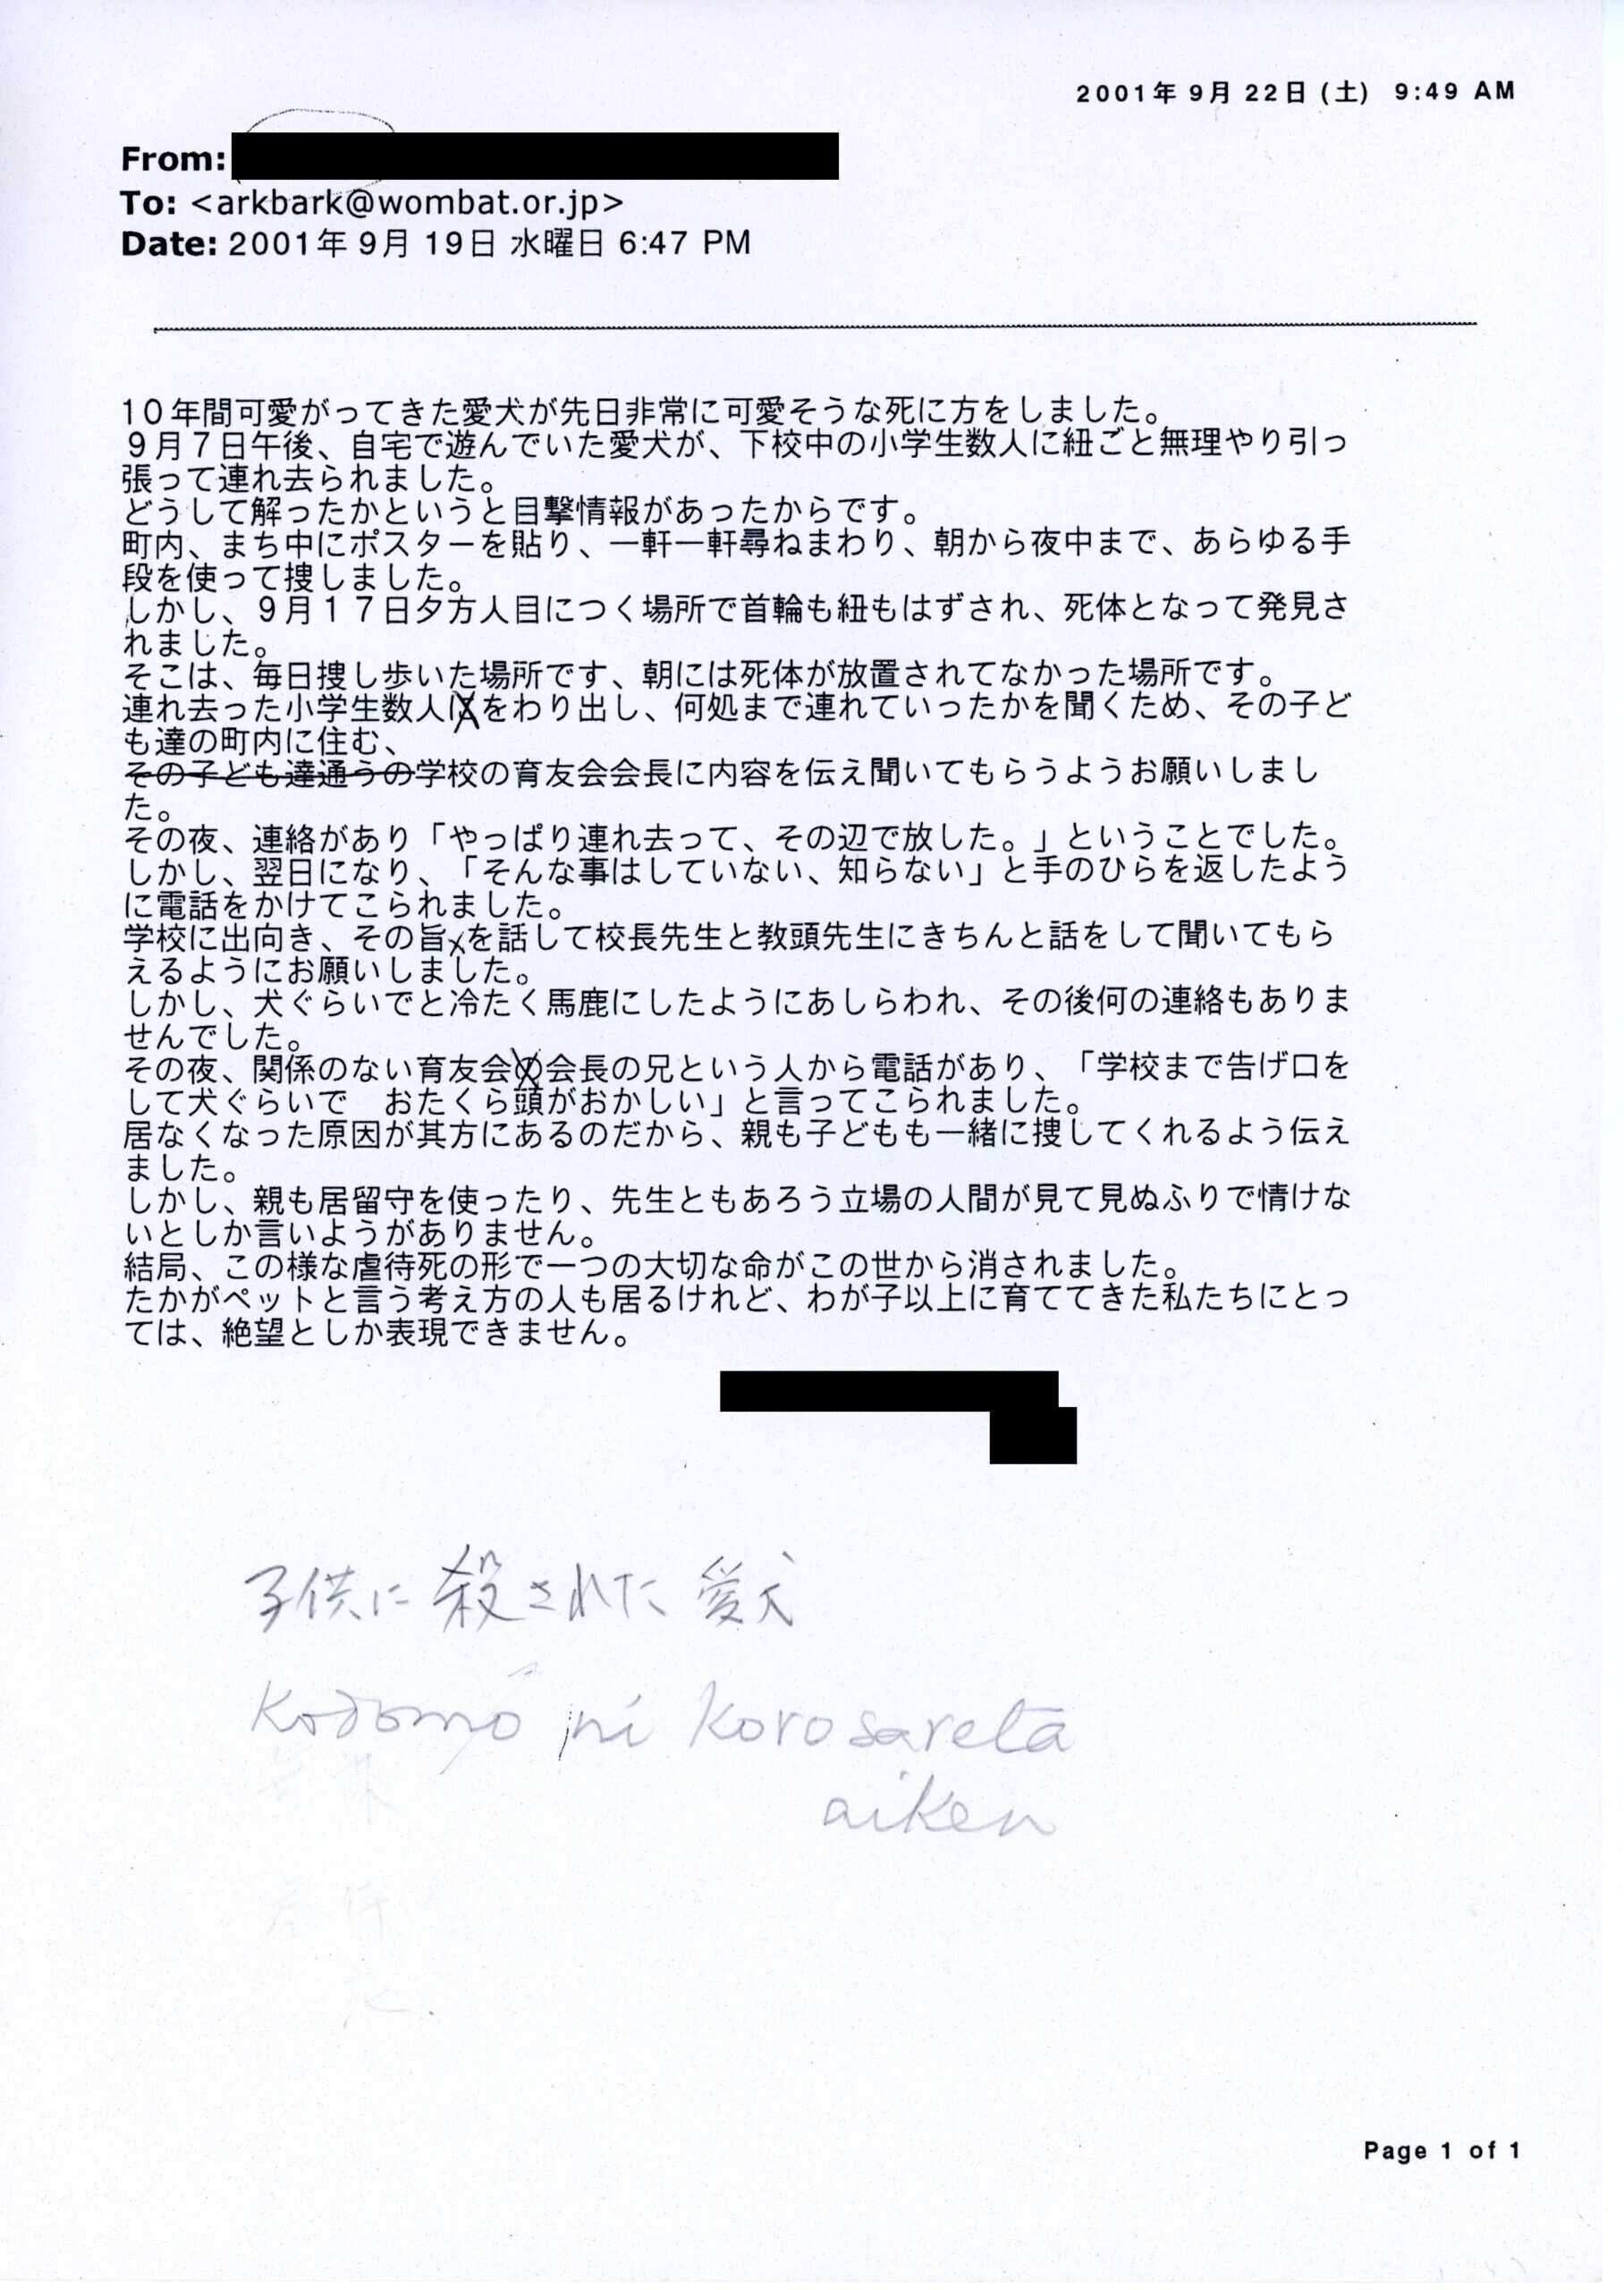 2001年 9月 22日 (土) 9:49 AM
From:
To: <arkbark@wombat.or.jp>
Date: 2001年 9月 19日 水曜日 6:47 PM
10年間可愛がってきた愛犬が先日非常に可愛そうな死に方をしました。
9月7日午後、自宅で遊んでいた愛犬が、下校中の小学生数人に紐ごと無理やり引っ
張って連れ去られました。
どうして解ったかというと目撃情報があったからです。
町内、まち中にポスターを貼り、一軒一軒尋ねまわり、朝から夜中まで、あらゆる手
段を使って捜しました。
しかし、9月17日夕方人目につく場所で首輪も紐もはずされ、死体となって発見さ
れました。
そこは、毎日捜し歩いた場所です、朝には死体が放置されてなかった場所です。
連れ去った小学生数人をわり出し、何処まで連れていったかを聞くため、その子ど
も達の町内に住む、
その子ども達通うの学校の育友会会長に内容を伝え聞いてもらうようお願いしまし
た。
その夜、連絡があり「やっぱり連れ去って、その辺で放した。」ということでした。
しかし、翌日になり、「そんな事はしていない、知らない」と手のひらを返したよう
に電話をかけてこられました。
学校に出向き、その旨を話して校長先生と教頭先生にきちんと話をして聞いてもら
えるようにお願いしました。
しかし、犬ぐらいでと冷たく馬鹿にしたようにあしらわれ、その後何の連絡もありま
せんでした。
その夜、関係のない育友会の会長の兄という人から電話があり、「学校まで告げ口を
して犬ぐらいで　おたくら頭がおかしい」と言ってこられました。
居なくなった原因が其方にあるのだから、親も子どもも一緒に捜してくれるよう伝え
ました。
しかし、親も居留守を使ったり、先生ともあろう立場の人間が見て見ぬふりで情けな
いとしか言いようがありません。
結局、この様な虐待死の形で一つの大切な命がこの世から消されました。
たかがペットと言う考え方の人も居るけれど、わが子以上に育ててきた私たちにとっ
ては、絶望としか表現できません。
子供に殺された愛犬
Kodomo ni korosareta
aiken
Page 1 of 1